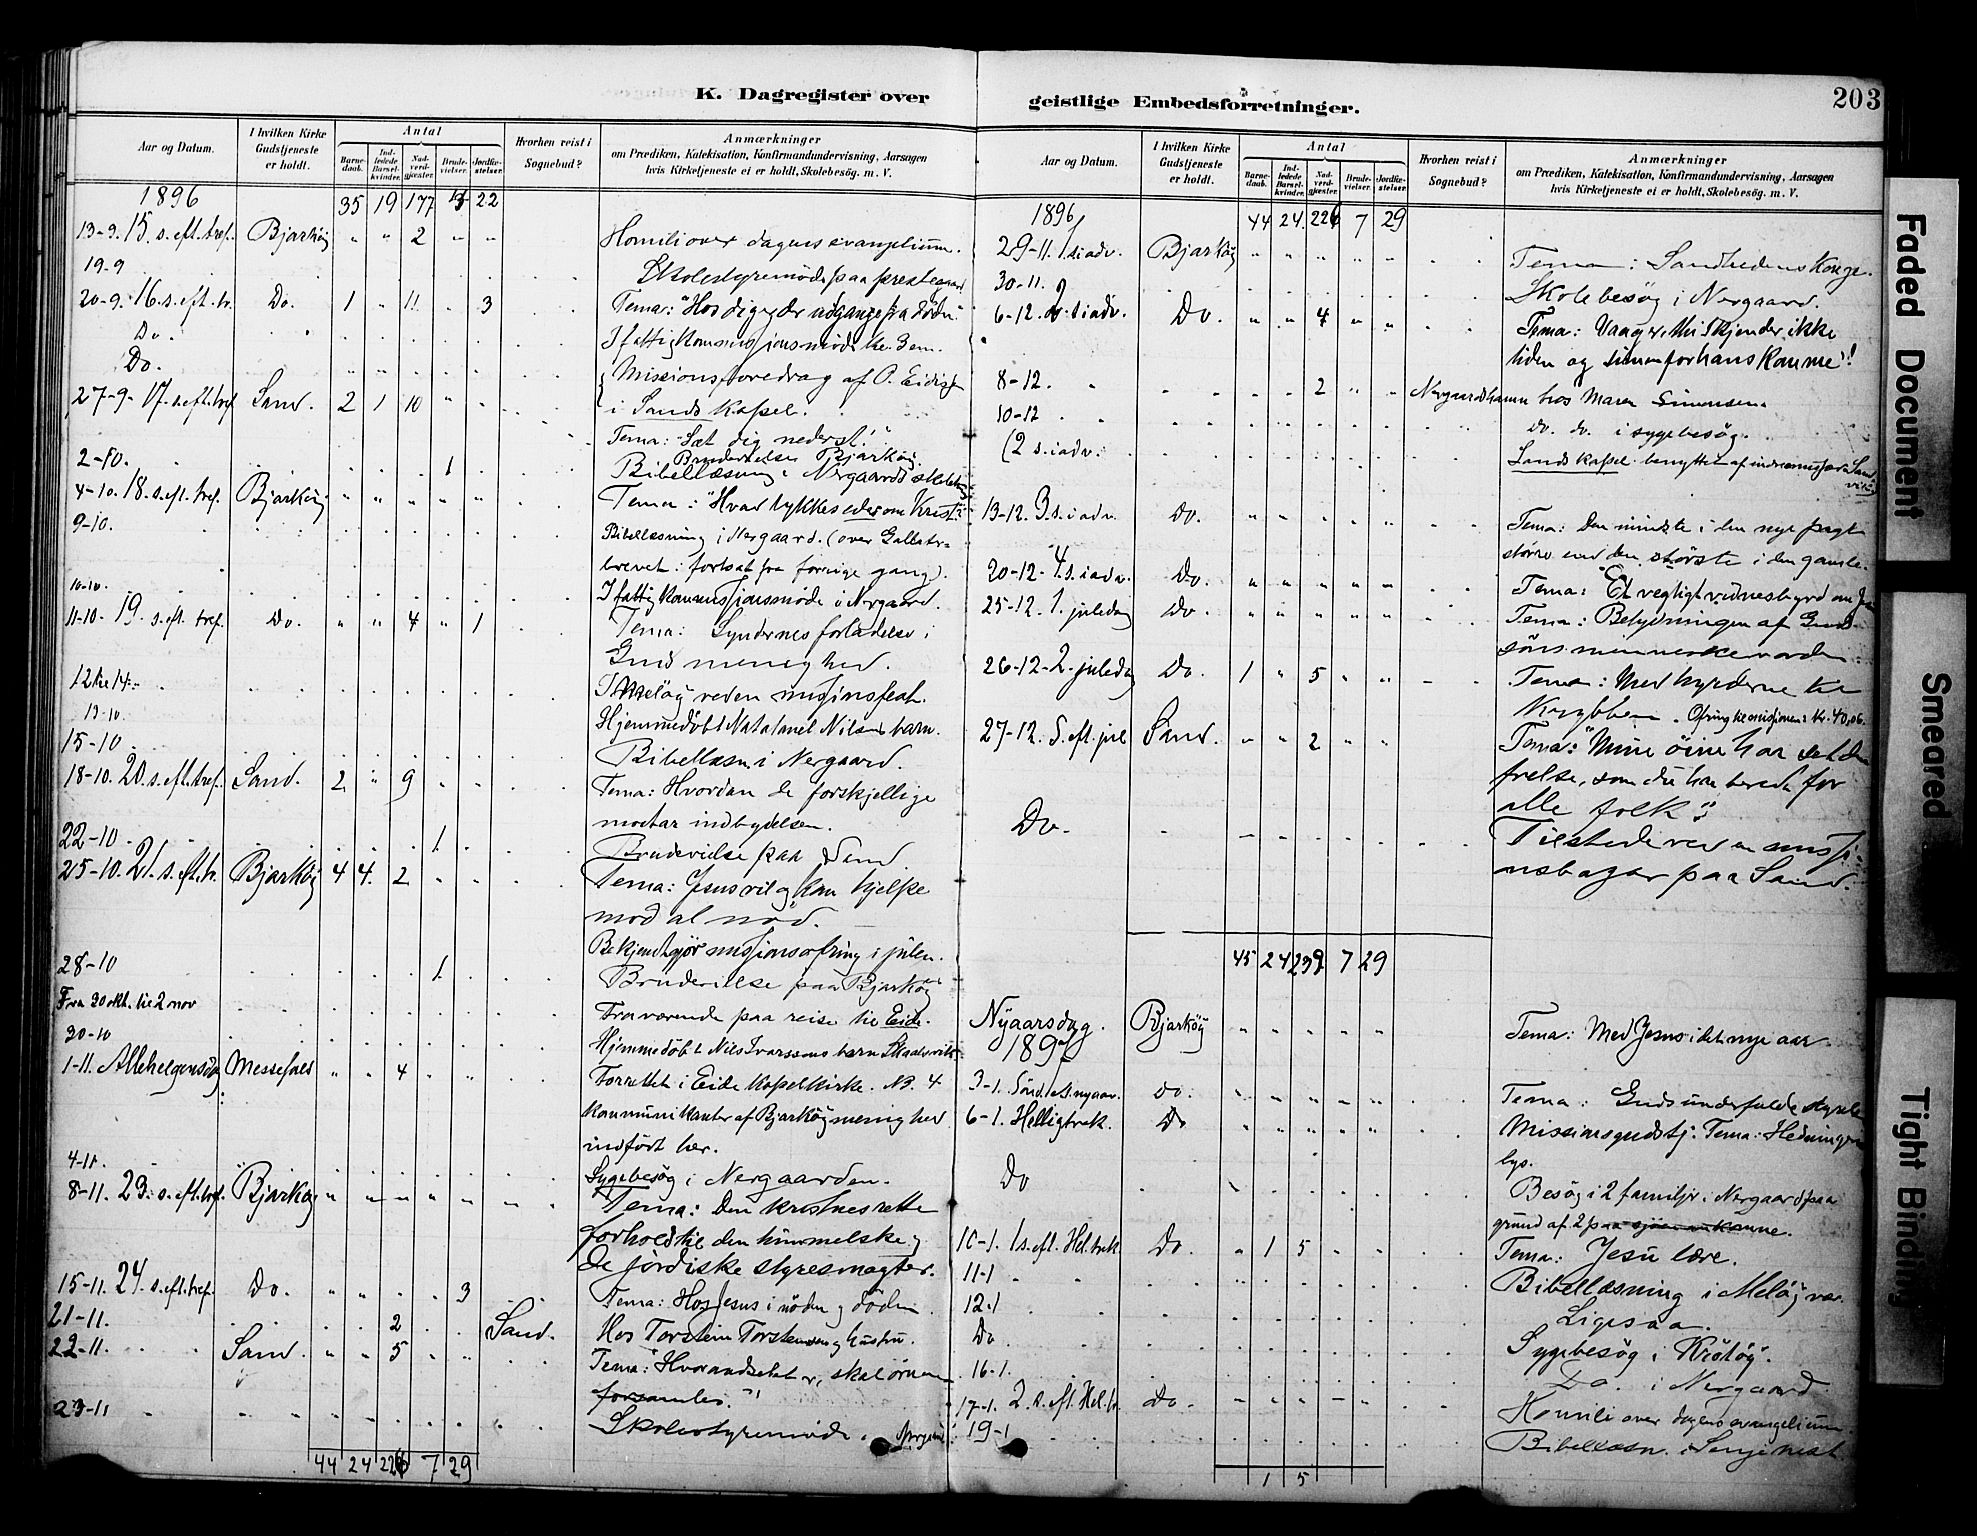 K. Dagregister over
Aar og Datum.
I hvilken Kirke Gudstjeneste er holdt.
Antal
Barnedaab.
Indledede Barselkvinder.
Nadverdgjæster.
Brudevielser.
Jordfæstelser.
Hvorhen reist i Sognebud?
Anmærkninger
om Prædiken, Katekisation, Konfirmandundervisning, Aarsagen
hvis Kirketjeneste ei er holdt, Skolebesøg. m. V.
1896 35 19 177 22
13-9. 15. s. eft. tref. Bjarköy " " 2 " " Homili over dagens evangelium.
19.9 Skolestyremöde paa prestegaard
20-9. 16. s. eft. tr. Do. 1 " 11 " 3 Tema: "Hos dig er der udgange fra döden"
Do. I fattigkommissjonsmöde kl. 3 em.
Do. Missionsforedrag af P. Eidissen
27-9- 17. s. eft. tref Sand. 2 1 10 " i Sands Kapel.
Tema: "Sæt dig nederst!"
2-10. 1 Brudevielse Bjarköy.
Bibellæsning i Nergaards skole
4-10. 18. s. eft. tref. Bjarköy " " " " " Tema: "Hvad tykkes eder om Kristus"
9-10. Bibellæsning i Nergaard. (over Galater-
brevet: fortsat fra forrige gang).
10-10. I fattigkommissjonsmöde i Nergaard.
11-10. 19. s. eft. tref. Do. " " 4 " 1 Tema: Syndernes forladelse i
Guds menighed.
12 til 14. I Melöy ved en misjonsfest.
13-10. Hjemmedöbt Natanael Nilsens barn.
15-10 Bibellæsn. i Nergaard.
18-10. 20. s. eft. tref. Sand. 2 " 9 Tema: Hvordan de forskjellige
modtar indbydelsen.
22-10 1 Brudevielse paa Sand
25-10. 21. s. eft. tr. Bjarköy 4 4. 2 Tema: Jesus vil og kan hjelpe
mod al nöd.
Bekjendtgjör misjonsofring i julen.
28-10 1 Brudevielse paa Bjarköy
Fra 30 okt. til 2 nov Fraværende paa reise til Eide.
30-10 Hjemmedöbt Nils Ivarssons barn
1-11. Allehelgensdag Messefald " " 4 Forrettet i Eide Kapelkirke. NB. 4
kommunikanter af Bjarköy menighed
indfört her.
4-11. Sygebesög i Nergaarden.
8-11. 23. s. eft. tref. Bjarköy " " " " " Tema: Den kristnes rette
forhold til den himmelske og
de jordiske styresmagter.
15-11. 24. s. eft. tref. Do. " " 3 Tema: Hos Jesus i nöden og döden
21-11. 2 Sand. Hos Torstein Torstensen og hustru.
22-11. Sand. " " 5 " " Tema: "Hvor aadselet er, skal örnene
forsamles."!
23-11 Skolestyremöde.
44 24 226 7 29
geistlige Embedsforretninger. 203
Aar og Datum.
I hvilken Kirke Gudstjeneste er holdt.
Antal
Barnedaab.
Indledede Barselkvinder.
Nadverdgjæster.
Brudevielser.
Jordfæstelser.
Hvorhen reist i Sognebud?
Anmærkninger
om Prædiken, Katekisation, Konfirmandundervisning, Aarsagen
hvis Kirketjeneste ei er holdt, Skolebesøg. m. V.
1896 44 24. 226 7 29
29-11. 1. s i adv. Bjarköy " " " " " Tema: Sandhedens Konge.
30-11. Skolebesög i Nergaard.
6-12. 2. s i adv. Do. " " 4 " " Tema: Vaag er, thi I kjender ikke
tiden og timen for hans komme!!
8-12. 2 " " Nergaardshamn hos Maren Simonsen.
10-12 Do. do. i sygebesög.
(2 s. i adv. Sands kapel benyttet af
13-12. 3. s. i adv. Do. " " " " " Tema: Den mindste i den nye pagt
större end den störste i den gamle.
20-12. 4. s. i adv. Do. " " " " " Tema: Et vegtigt vidnesbyrd om
25-12. 1. juledag Do. " " " " " Tema: Betydningen af Guds
söns menneskevorden.
26-12. 2. juledag Do 1 " 5 " " Tema: Med hyrderne til
Krybben. Ofring til misjonen: kr. 40,06.
27-12. S. eft. jul Sand. " " 2 " " Tema: "Mine öine har set din
frelse, som du har beredt for
alle folk".
Do. Tilstede ved en misjo-
nsbazar paa Sand.
45 24 239 7 29
Nyaarsdag. Bjarköy " " " " " Tema: Med Jesus i det nye aar.
1897
3-1. Sönd. eft. nyaar. Do. " " " " " Tema: Guds underfulde styrelse
6-1. Helligtrek. Do " " " " " Missionsgudstj. Tema: Hedningers
lys.
Do Besög i 2 familjer i Nergaard paa
grund af 2 paa sjöen omkomne.
10-1. 1 s. eft. Hel. trek. Do. " 1 5 " " Tema: Jesu lære.
11-1 Bibellæsning i Melöyvær.
12-1 Ligesaa.
Do Sygebesög i Krötöy.
16-1. Do. i Nergaard
17-1. 2. s. eft. Hel. tr. Do. Homili over dagens evangelium
19-1 Bibellæsn. i Senjenest
1 5
Faded Document
Smeared
Tight Binding